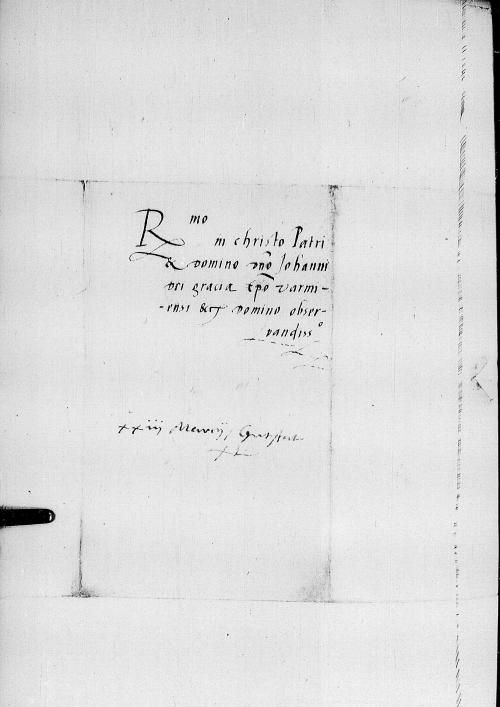 Rmo
in christo Patri
& Domino Dno Johanni
Dei gracia Epo Varmi-
-ensi &c Domino obser-
vandisso
xxiij